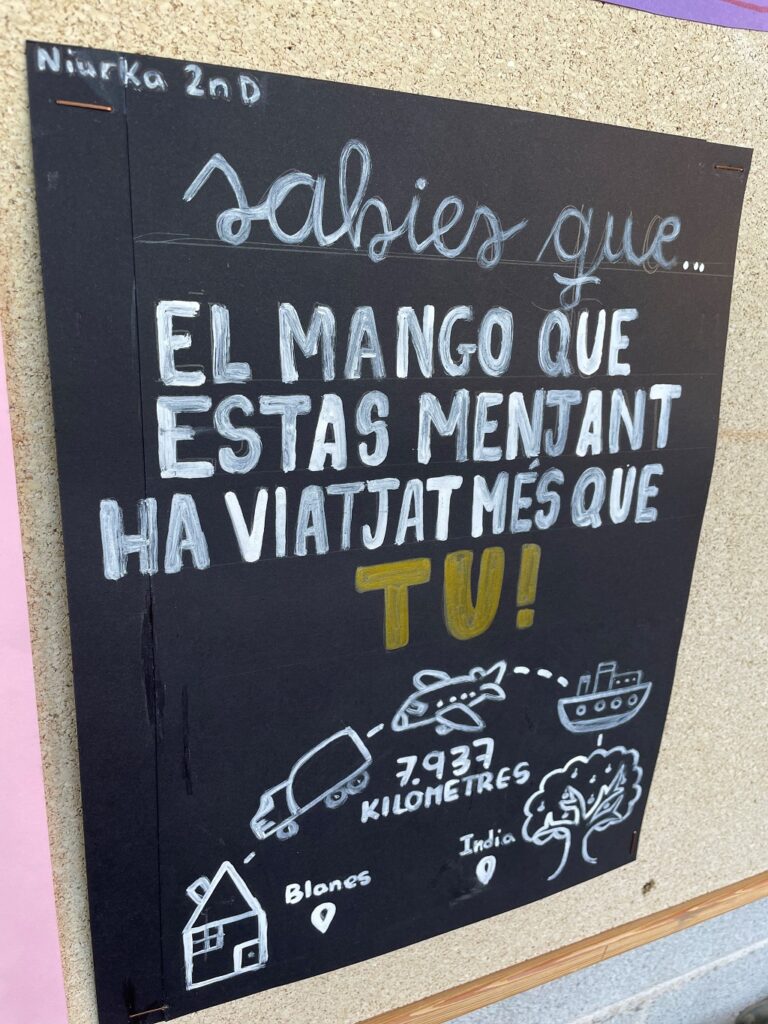 Niurka 2n D
sabies que...
EL MANGO QUE
ESTAS MENJANT
HA VIATJAT MÉS QUE
TU!
7.937
KILOMETRES
India
Blanes